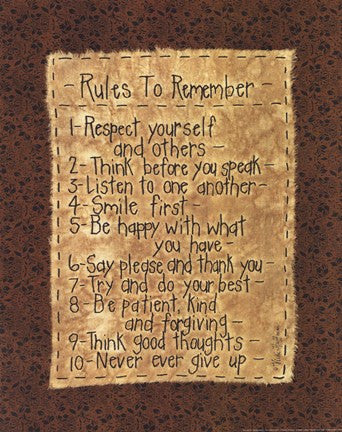 - Rules To Remember -
1- Respect yourself
and others -
2- Think before you speak -
3- Listen to one another -
4- Smile first -
5- Be happy with what
you have -
6- Say please and thank you -
7- Try and do your best -
8- Be patient, kind
and forgiving -
9- Think good thoughts -
10- Never ever give up -